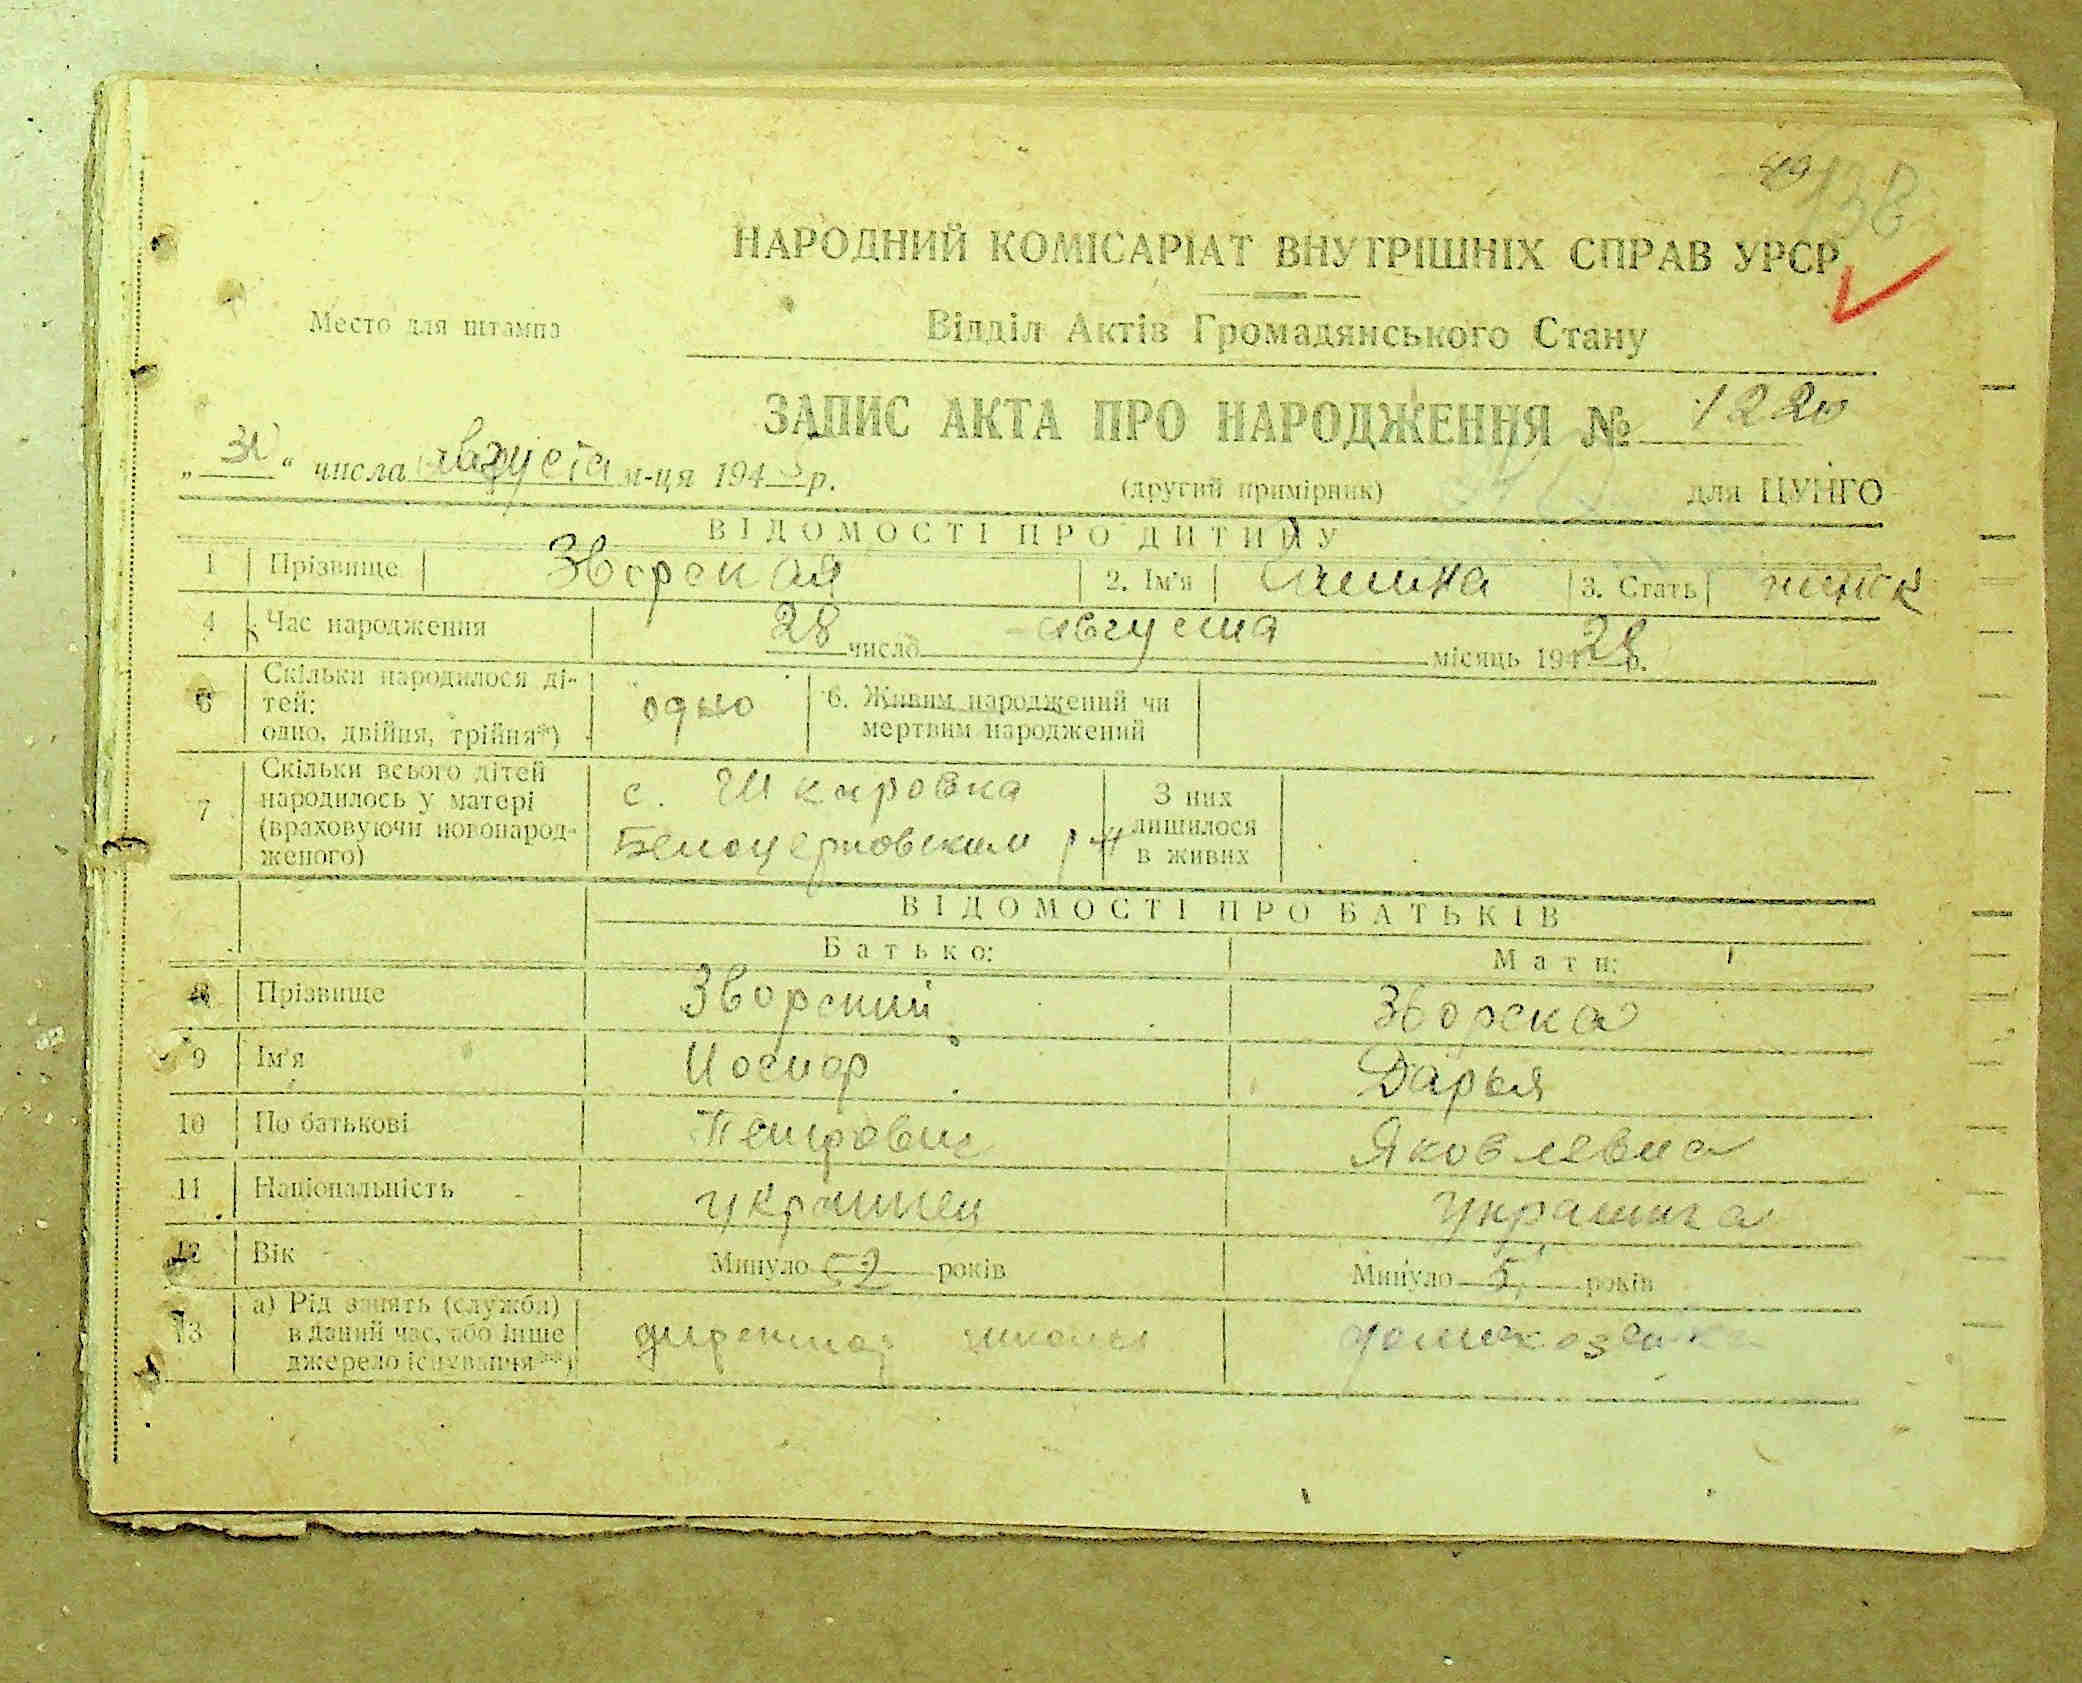 138
НАРОДНИЙ КОМІСАРІАТ ВНУТРІШНІХ СПРАВ УРСР
Место для штампа
Відділ Актів Громадянського Стану
ЗАПИС АКТА ПРО НАРОДЖЕННЯ № 1220
„ “ числа августа м-ця 194 р.
(другий примірник) для ЦУНГО
ВІДОМОСТІ ПРО ДИТИНУ
1 Прізвище Зворская 2. Ім'я 3. Стать женск
4 Час народження 28 число августа місяць 194 28 р.
5 Скільки народилося ді-
тей:
одно, двійня, трійня*) одно 6. Живим народжений чи
мертвим народжений
7 Скільки всього дітей
народилось у матері
(враховуючи новонарод-
женого) с. Шкаровка
Белоцерковский р-н З них
лишилося
в живих
ВІДОМОСТІ ПРО БАТЬКІВ
Батько: Мати:
8 Прізвище Зворский Зворска
9 Ім'я Иосиф Дарья
10 По батькові Петрович Яковлевна
11 Національність украинец украинка
12 Вік Минуло років Минуло років
13 а) Рід занять (служби)
в даний час, або інше
джерело існування**) директор школы домохозяйка